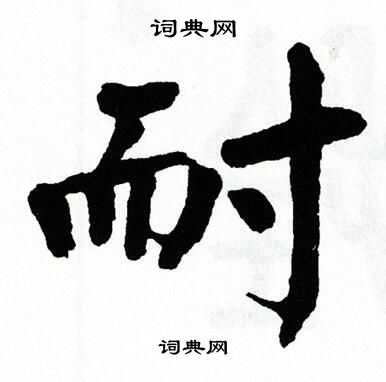 词典网
耐
词典网